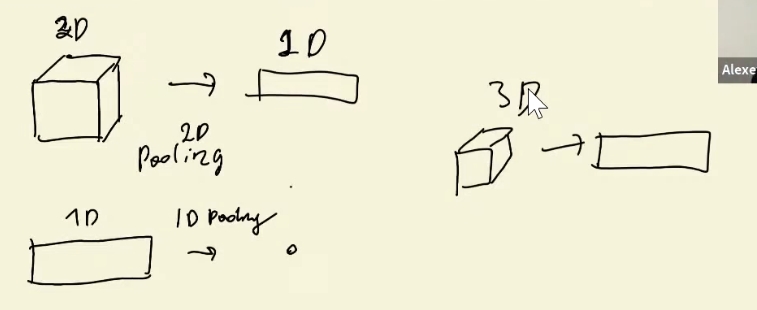 2D
1D
2D
Pooling
3D
1D
1D Pooling
Alexe